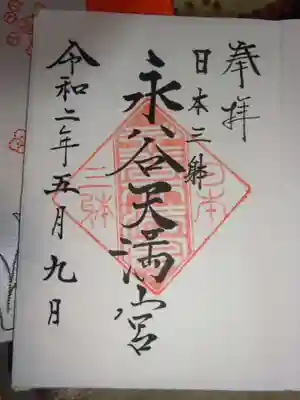 奉拝
日本三躰
永谷天満宮
令和二年五月九日
日本
三躰